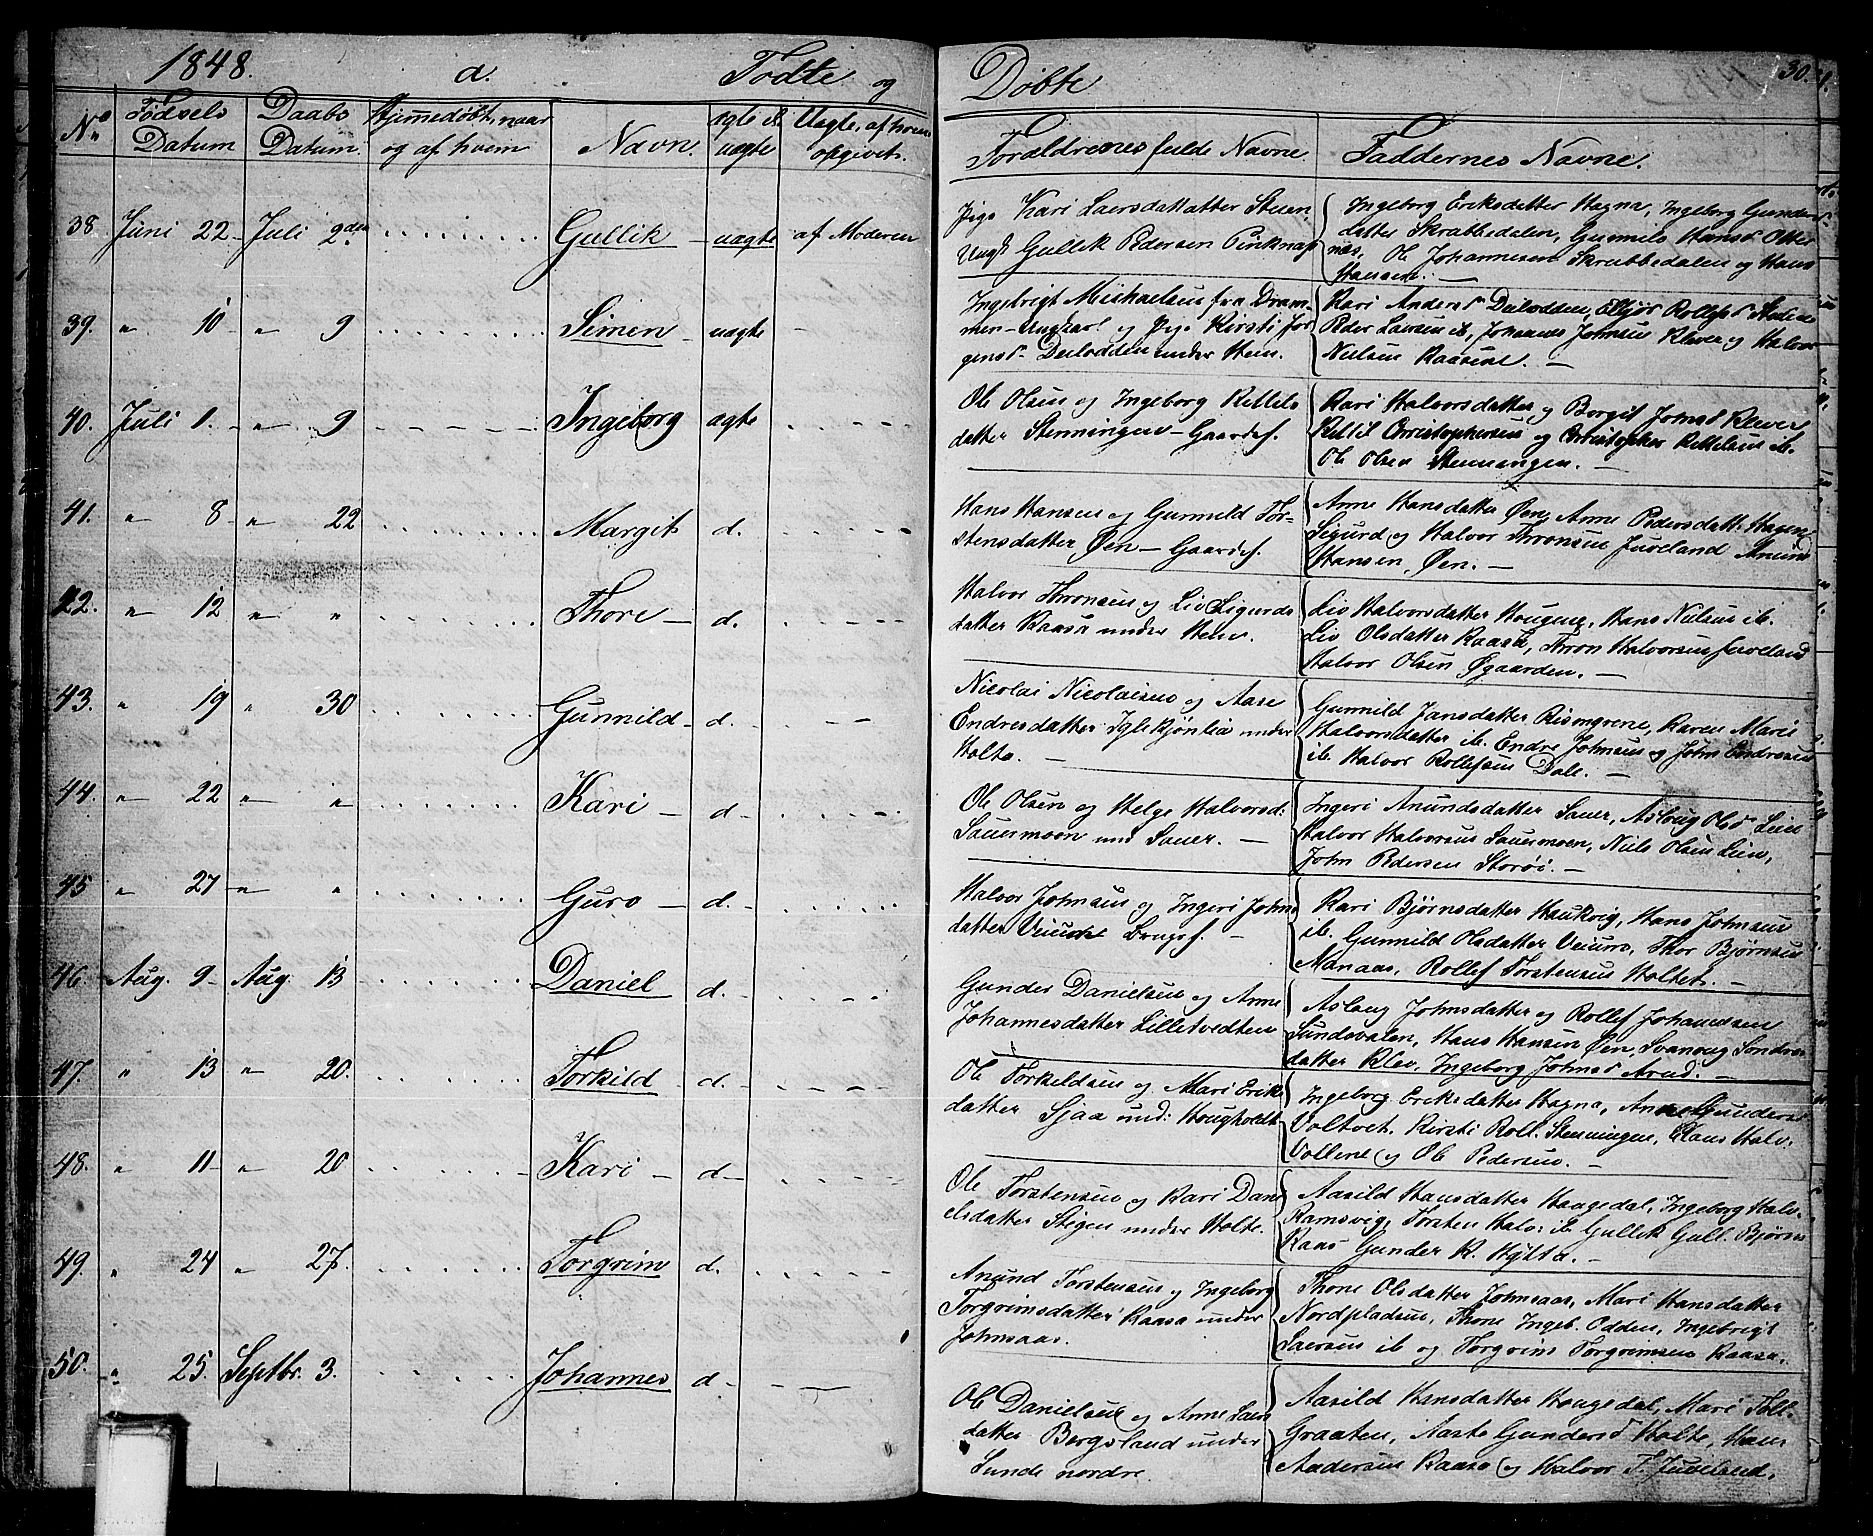 1848. a. Fødte og
Døbte 30.
No Fødsels Datum Daabs Datum Hjemmedøbt, naar og af hvem Navn ægte el. uægte Uægte, af hvem opgivet.
Forældrenes fulde Navne. Faddernes Navne.
38 Juni 22 Juli 2den Gullik uægte af Moderen
Pige Kari Laersdatter Steen,
Ungk. Gullik Pedersen Pinknap
Ingeborg Eriksdatter Hagna, Ingeborg Gunders
datter Skrabbedalen, Gunnild Hansd. Otter
næs, Ole Johannesen Skrabbedalen og Hans
Hansen. —
39. " 10 " 9 Simen uægte —
Ingebrigt Mikkaelsen fra Dram-
men Ungkarl og Pige Kirsti Jør
gensd. Deilodden under Steen.
Kari Andersd Deilodden,
Peder Laersen ib, Johannes Johnsen Klever og Halvor
Nielsen Raasene. —
40. Juli 1. " 9 Ingeborg ægte
Ole Olsen og Ingeborg Kittils
datter Stenningen Gaardf.
Kari Halvorsdatter og Borgit Johnsd Klever
Kittil Christophersen og Christopher Kittelsen ib.
Ole Olsen Stenningen. —
41. " 8 " 22 Margit d.
Hans Hansen og Gunnild Tor-
stensdatter Øen — Gaardf.
Anne Hansdatter Øen, Anne Pedersdatt. Hagen
Sigurd og Halvor Thronsen Juveland Anund
Hansen, Øen. —
42. " 12 " " Thore d.
Halvor Thronsen og Liv Sigurds
datter Raasa under Steen.
Liv Halvorsdatter Hougene, Hans Nielsen ib.
Liv Olsdatter Raasa, Thron Halvorsen Juveland
Halvor Olsen Øgaarden. —
43. " 19 " 30 Gunnild d.
Nicolai Nicolaisen og Aase
Endresdatter Iglekjønlia under
Holte. —
Gunnild Jansdatter Risongrene, Karen Marie
Halvorsdatter ib. Endre Johnsen og John Endresen
ib. Halvor Rollefsen Dale. —
44. " 22 " " Kari d.
Ole Olsen og Helge Halvorsd:
Sauermoen und Sauer. —
Ingeri Anundsdatter Sauer, Aslaug Olsd. Lien
Halvor Halvorsen Sauermoen, Niels Olsen Lien,
John Pedersen Storøi. —
45 " 27 " " Guro d.
Halvor Johnsen og Ingeri Johns
datter Veium Brugsf. —
Kari Bjørnsdatter Haukvig, Hans Johnsen
ib. Gunnild Olsdatter Veium, Thor Bjørnsen
Nanaas, Rollef Torstensen Holtet. —
46. Aug. 9 Aug. 13 Daniel d.
Gunder Danielsen og Anne
Johannesdatter Lilletvedten
Aslaug Johnsdatter og Rollef Johannesen
Sundsvalen, Hans Hansen Øen, Svanaug Sondre
datter Klev, Ingeborg Johnsd Arud. —
47. " 13 " 20. Torkild d.
Ole Torkeldsen og Mari Erik
datter Sjaa und: Hougholdt
Ingeborg Eriksdatter Hagna, Anne Gundersd
Voltvet. Kirsti Roll. Stenningen, Claus Halv.
Vollene og Ole Pedersen. —
48. " 11 " 20 Kari d.
Ole Torstensen og Kari Dani
elsdatter Stigen under Holte.
Aasild Hansdatter Haagedal, Ingeborg Halv.
Ramsvig, Torsten Halv. ib. Gullik Gull. Bjørn
Raas Gunder K. Hytta. —
49. " 24 " 27. Torgrim d.
Anund Torstensen og Ingeborg
Torgrimsdatter Raasa under
Johnsaas.
Thone Olsdatter Johnsaas, Mari Hansdatter
Nordpladsen, Thone Ingeb. Odden, Ingebrigt
Laersen ib og Torgrim Torgrimsen Raasa.
50. " 25. Septbr. 3. Johannes d.
Ole Danielsen og Anne Laers
datter Bergsland under
Sunde nordre.
Aasild Hansdatter Haagedal, Mari Toll.
Graaten, Aaste Gundersd Holte, Hans
Andersen Raasa og Halvor T. Juveland.